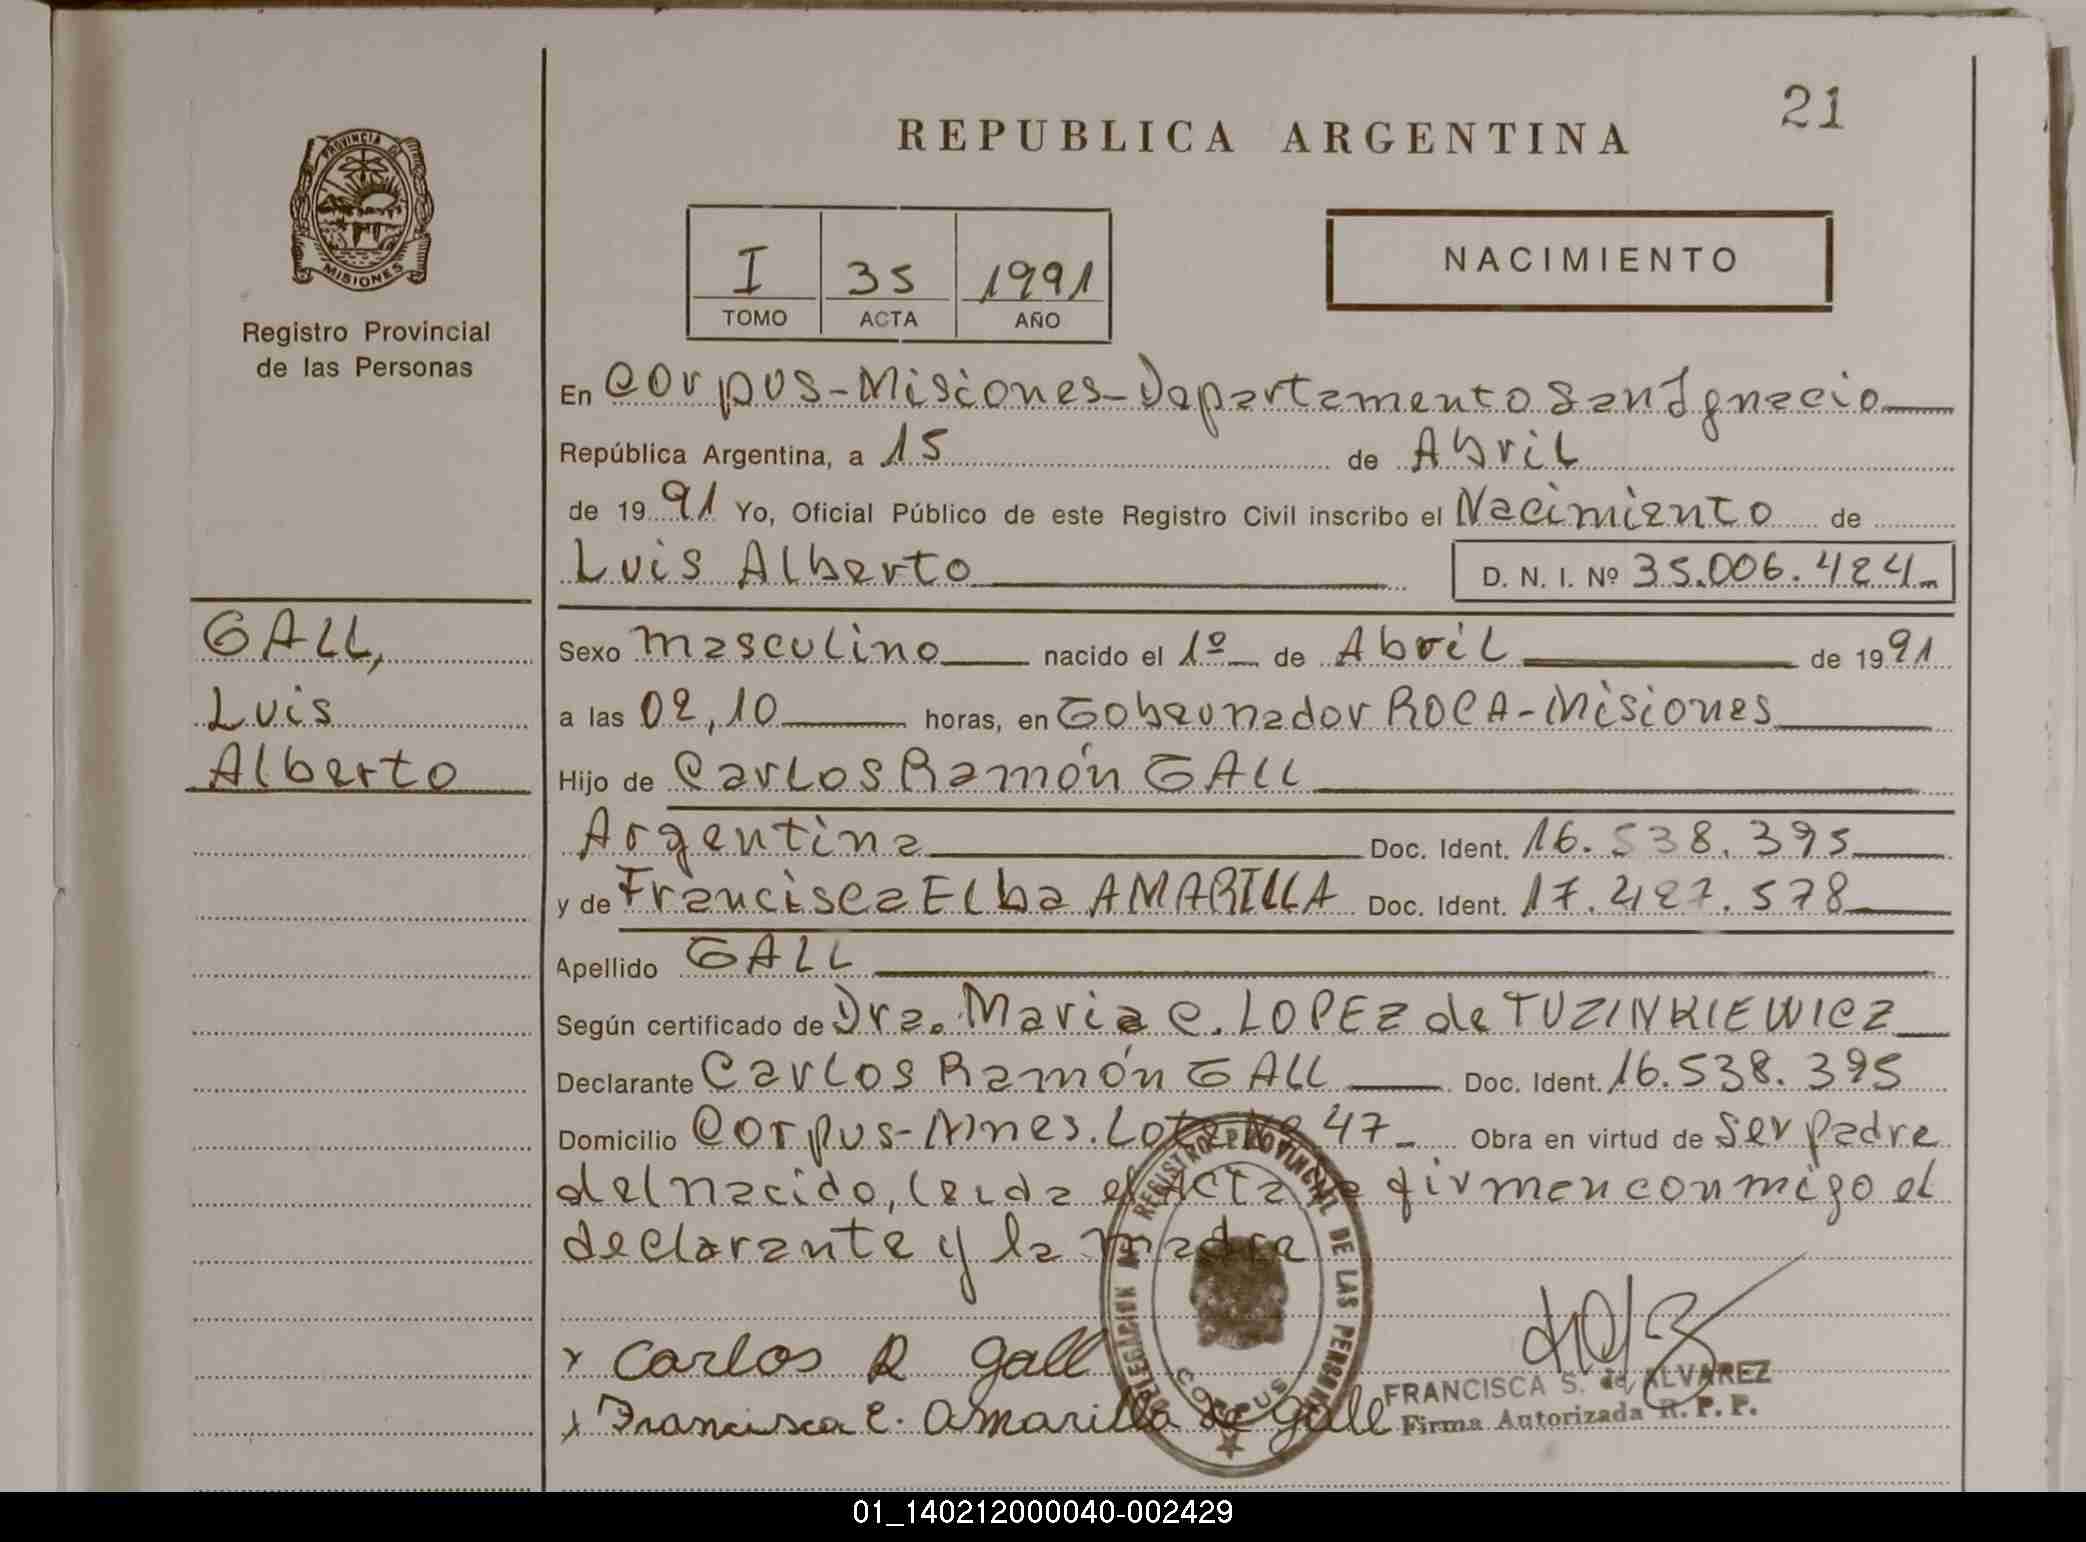 21
REPUBLICA ARGENTINA
PROVINCIA DE
MISIONES
Registro Provincial
de las Personas
I 35 1991
TOMO ACTA AÑO
NACIMIENTO
En Corpus-Misiones-Departamento San Ignacio
República Argentina, a 15 de Abril
de 1991 Yo, Oficial Público de este Registro Civil inscribo el Nacimiento de
Luis Alberto D. N. I. Nº 35.006.424
GALL,
Luis
Alberto
Sexo masculino nacido el 1º de Abril de 1991
a las 02,10 horas, en Gobernador ROCA-Misiones
Hijo de Carlos Ramón GALL
Argentina Doc. Ident. 16.538.395
y de Francisca Elba AMARILLA Doc. Ident. 17.427.578
Apellido GALL
Según certificado de Dra. Maria C. LOPEZ de TUZINKIEWICZ
Declarante Carlos Ramón GALL Doc. Ident. 16.538.395
Domicilio Corpus-Mnes. Lote Nº 47 Obra en virtud de Ser padre
del nacido, leida el Acta firmen conmigo el
declarante y la madre
DELEGACION REGISTRO PROVINCIAL DE LAS PERSONAS
CORPUS
x Carlos R Gall
x Francisca E. Amarilla de Gall
FRANCISCA S. de ALVAREZ
Firma Autorizada R. P. P.
01_140212000040-002429